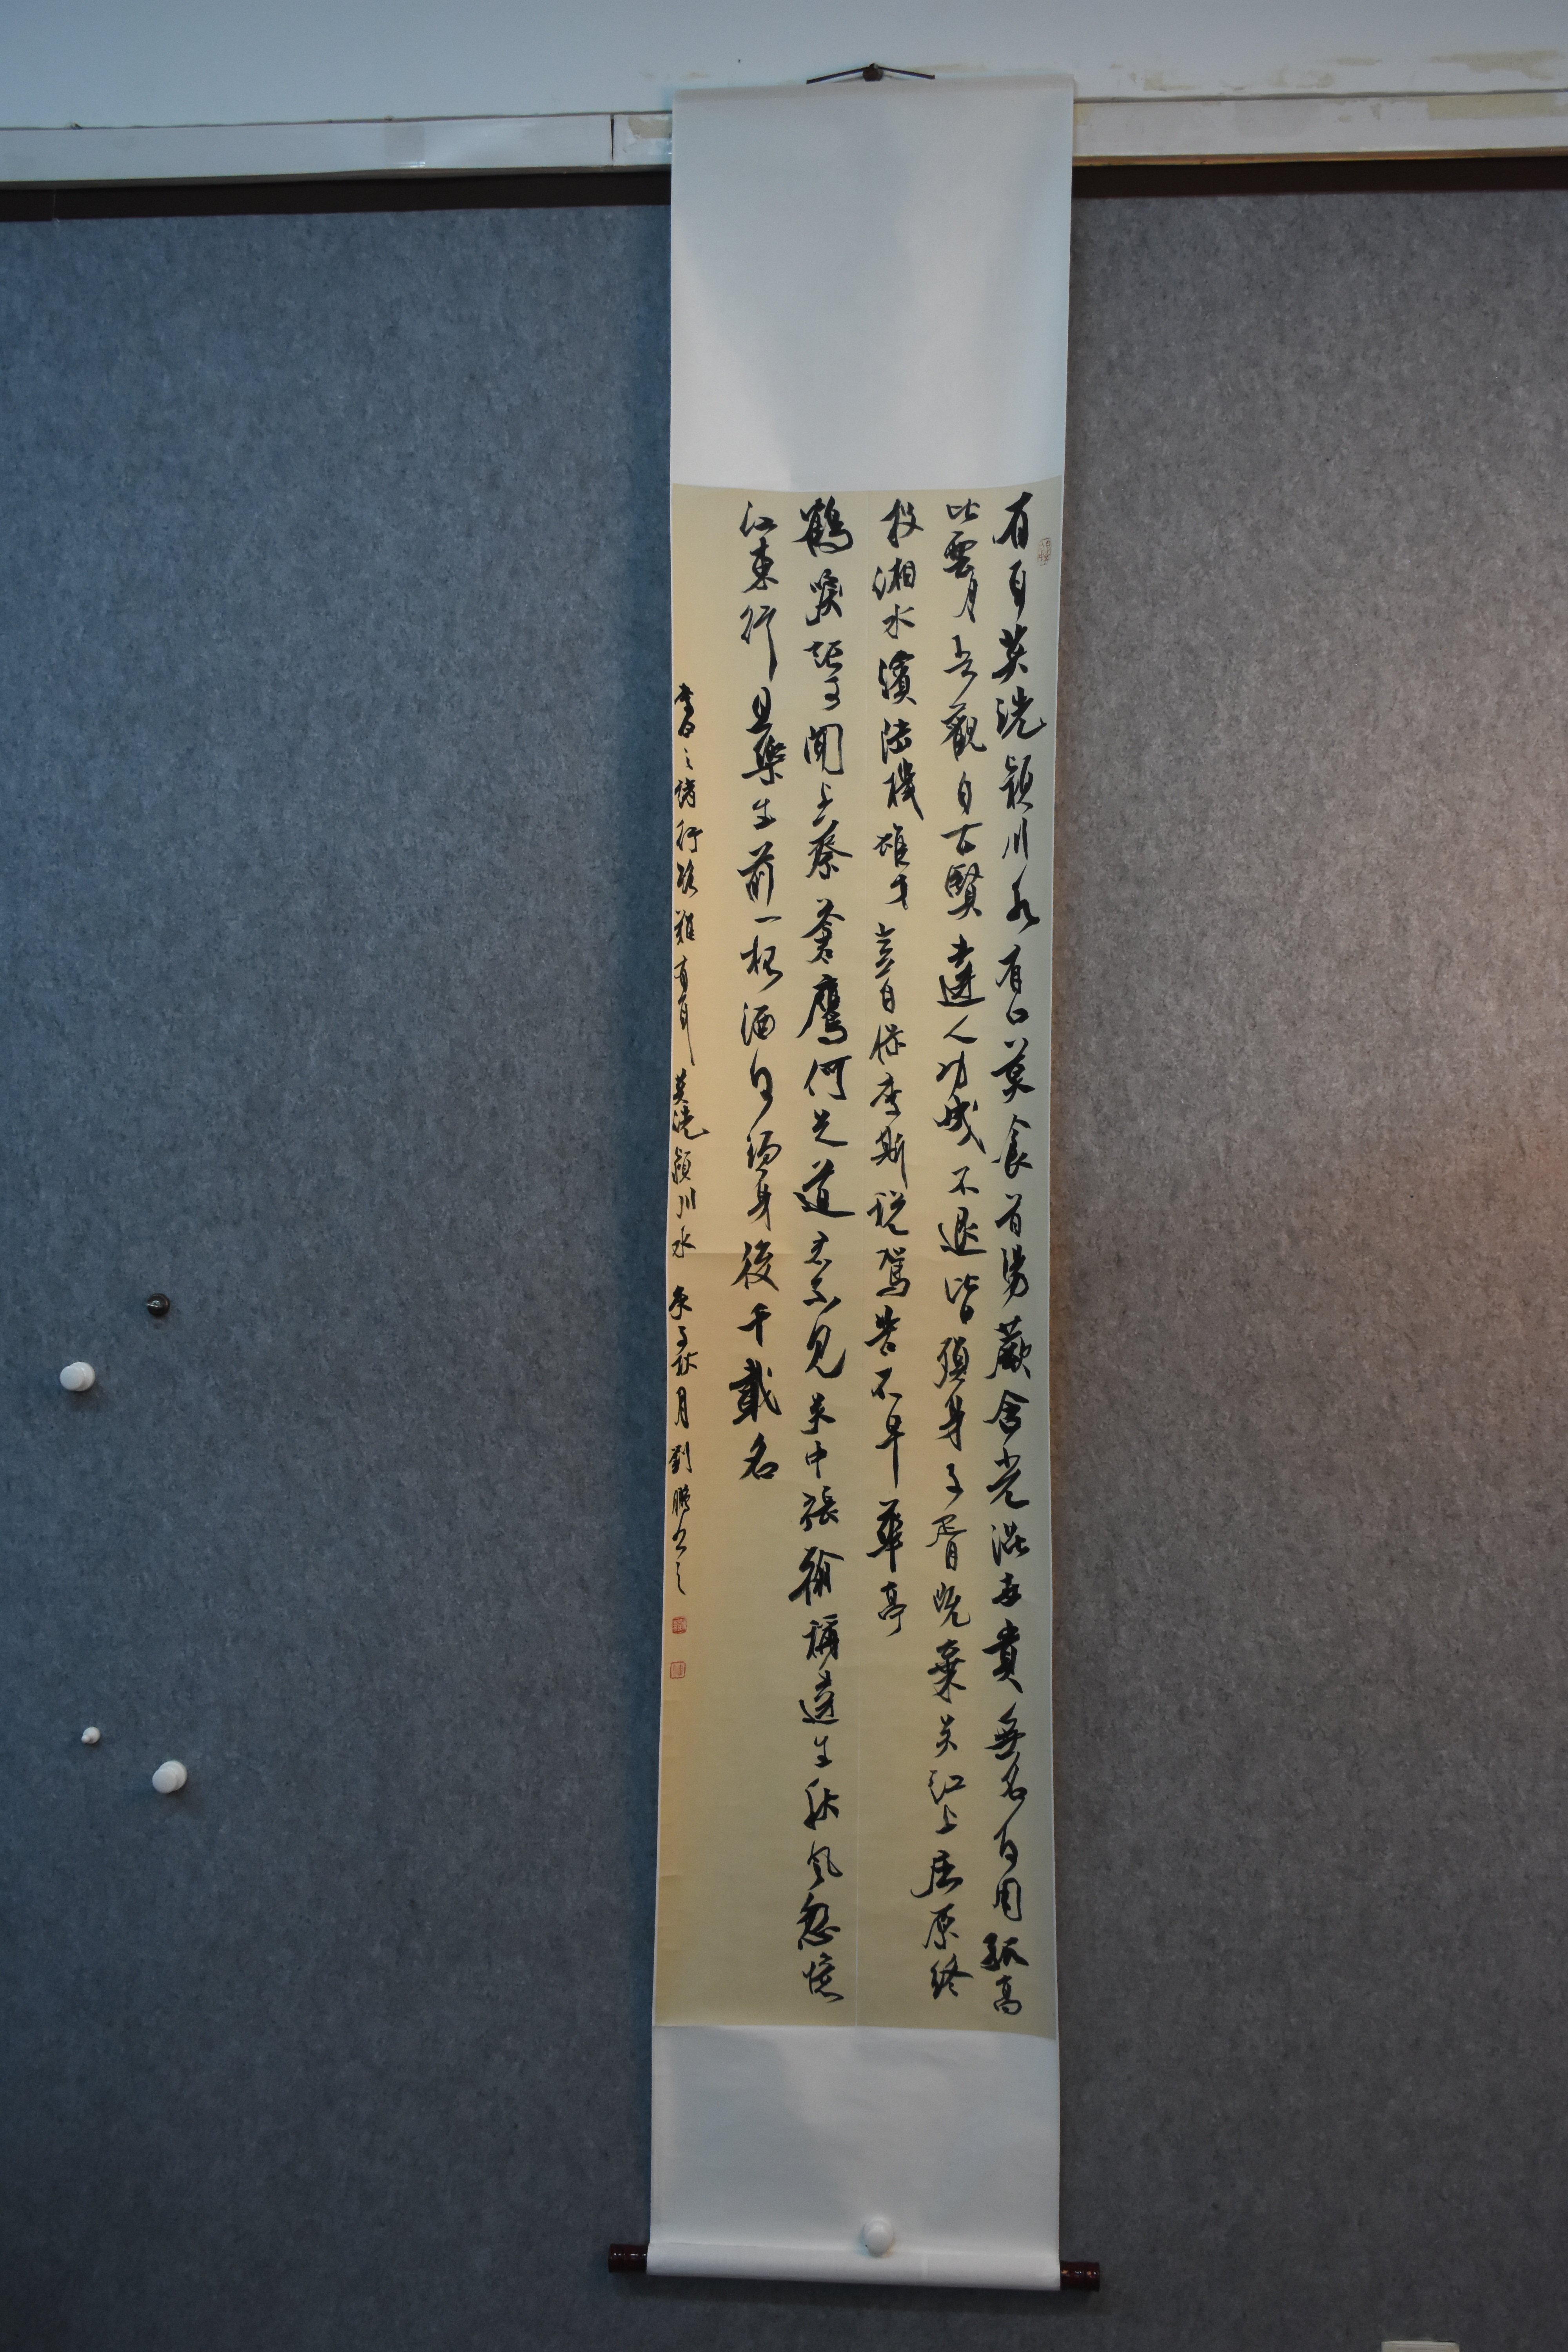 有耳莫洗潁川水有口莫食首陽蕨含光混世貴無名何用孤高
比雲月吾觀自古賢達人功成不退皆殞身子胥既棄吳江上屈原終
投湘水濱陸機雄才豈自保李斯稅駕苦不早華亭
鶴唳詎可聞上蔡蒼鷹何足道君不見吳中張翰稱達生秋風忽憶
江東行且樂生前一杯酒何須身後千載名
李白之詩行路難有耳莫洗潁川水 庚子秋月劉鵬書之